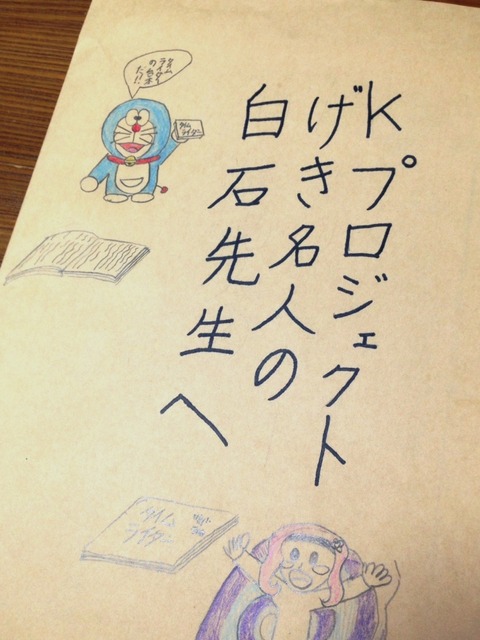 Kプロジェクト
げき名人の
白石先生へ
タイム
ライダー
の色本
だっ!!
タイム
ライダー
タイム
ライダー